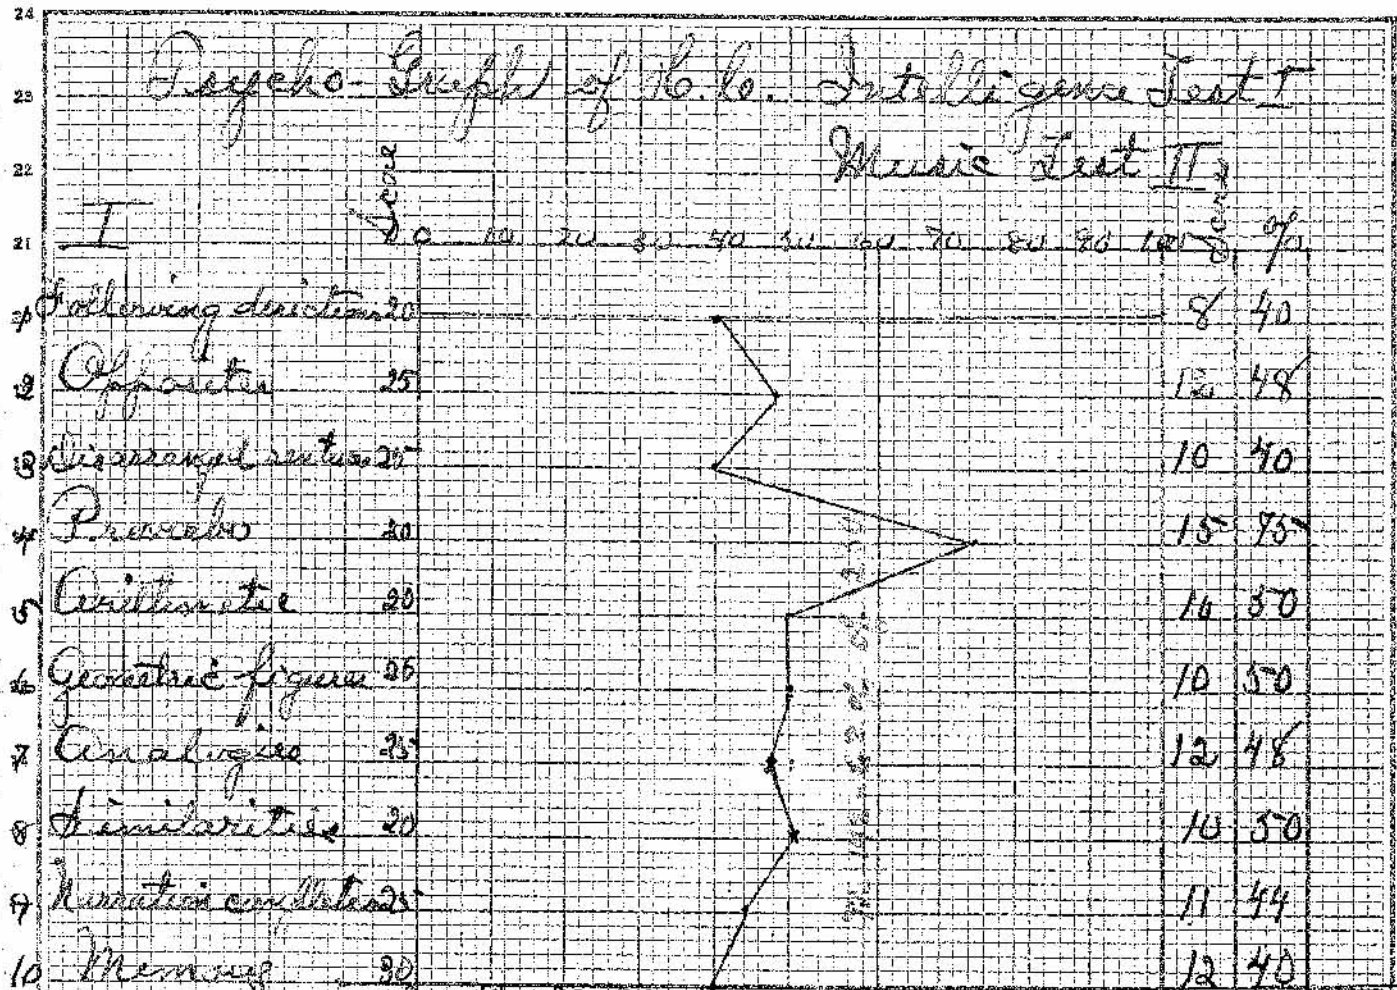 24
Psycho-Graph of H.C. Intelligence Test I
23
Music Test II
22
I Score 0 10 20 30 40 50 60 70 80 90 100 Score %
21
Following directions 20 8 40
Opposites 25 12 48
3 Disarranged 25 10 40
4 Proverbs 20 15 75
5 Arithmetic 20 10 50
6 Geometric figures 20 10 50
7 Analogies 25 12 48
8 Similarities 20 10 50
9 Narration completion 25 11 44
10 Memory 30 12 40